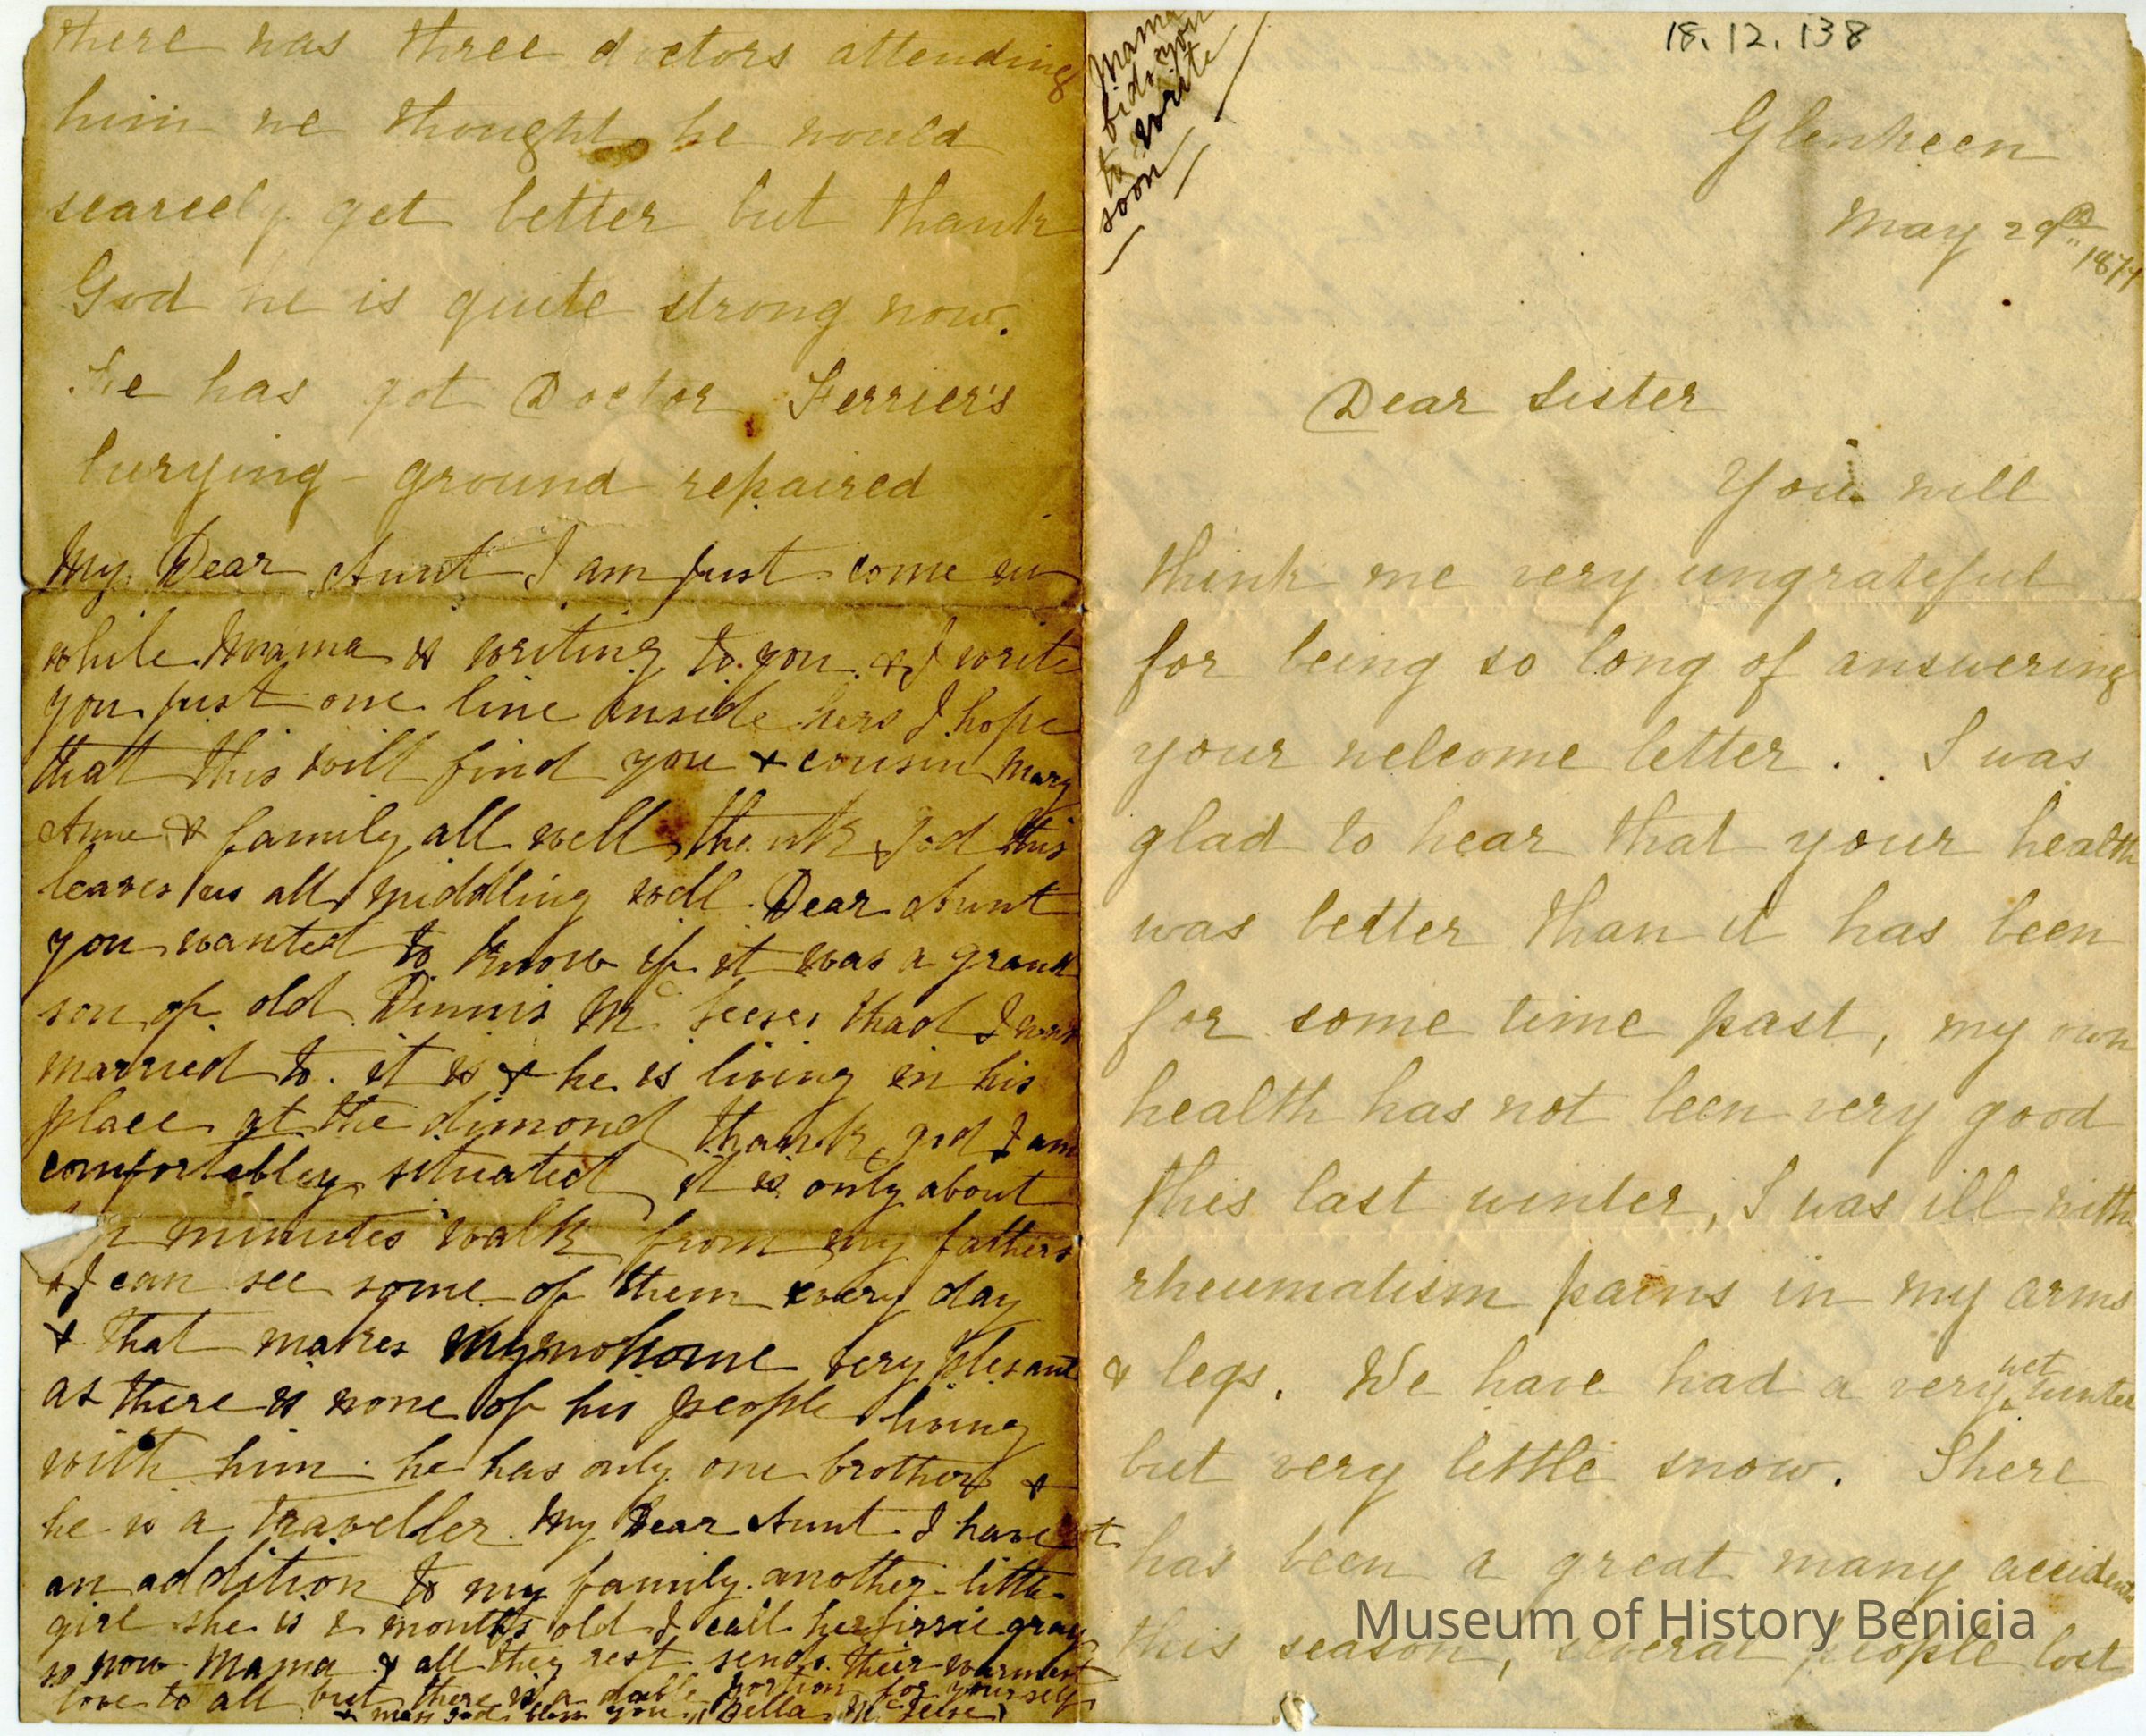 18. 12. 138
Glenkeen
May 29th
Dear Sister
You will
think me very ungrateful
for being so long of answering
your welcome letter. I was
glad to hear that your health
was better than it has been
for some time past, my own
health has not been very good
this last winter, I was ill with
rheumatism pains in my arms
& legs. We have had a very wet winter
but very little snow. There
has been a great many accidents
this season, several people lost
there was three doctors attending
him we thought he would
scarcely get better but thank
God he is quite strong now.
He has got Doctor Ferrier's
burying-ground repaired
My Dear Aunt I am just come in
while Mama is writing to you & I write
you just one line inside hers I hope
that this will find you & cousin Mary
Anne & family all well thank god this
leaves us all middling well. Dear Aunt
you wanted to know if it was a grand
son of old Dinnis Mc that I was
married to. it is & he is living in his
place at the dimond thank god I am
comfortabley situated it is only about
minutes walk from my fathers
& I can see some of them every day
& that makes my home very plesant
as there is none of his people living
with him. he has only one brother &
he is a traveller. My Dear Aunt I have got
an addition to my family. another little
girl she is 2 months old I call her gray
so now Mama & all they rest sends their warmest
love to all but there is a duble portion for yourself
& may god bless you (Bella Mc
Mama
bids you
to write
soon
Museum of History Benicia